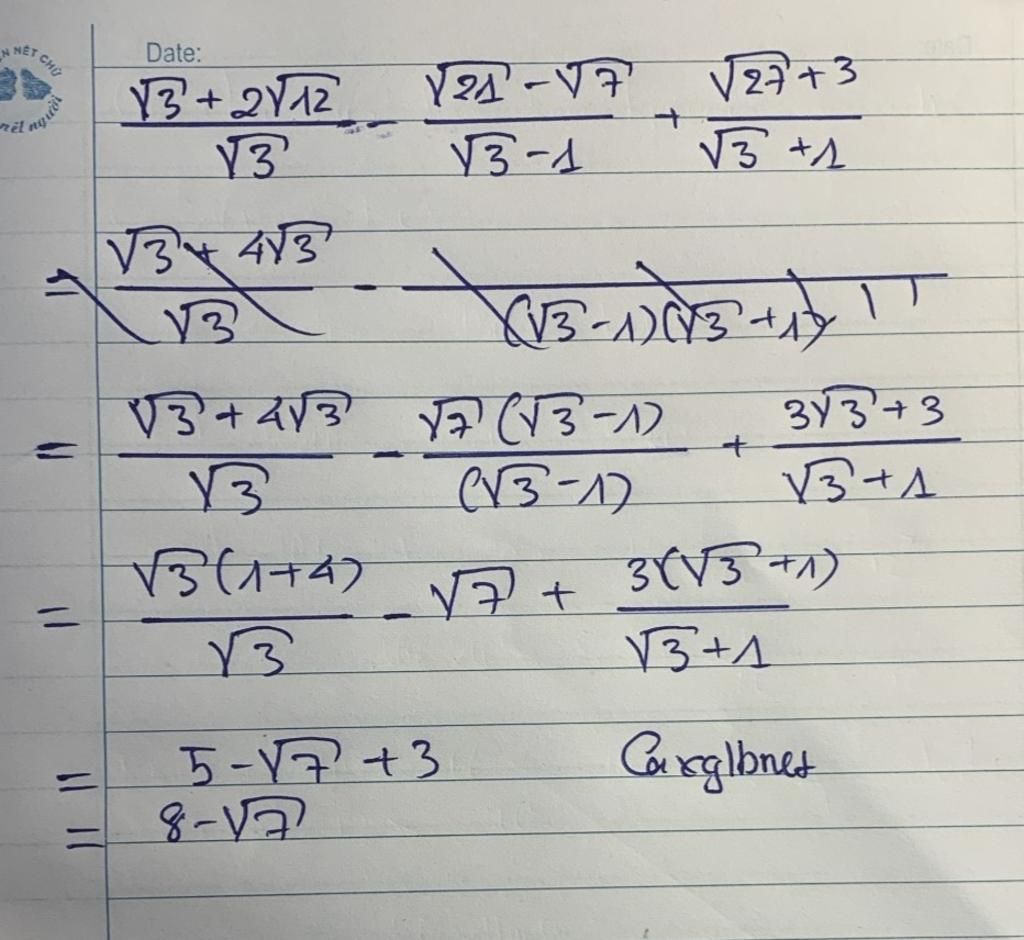 N NÉT CHỮ
nết người
Date:
(√3 + 2√12)/√3 - (√21 - √7)/(√3 - 1) + (√27 + 3)/(√3 + 1)
= (√3 + 4√3)/√3 - /((√3 - 1)(√3 + 1))
= (√3 + 4√3)/√3 - √7(√3 - 1)/(√3 - 1) + (3√3 + 3)/(√3 + 1)
= √3(1 + 4)/√3 - √7 + 3(√3 + 1)/(√3 + 1)
= 5 - √7 + 3 Caxglbnes
= 8 - √7